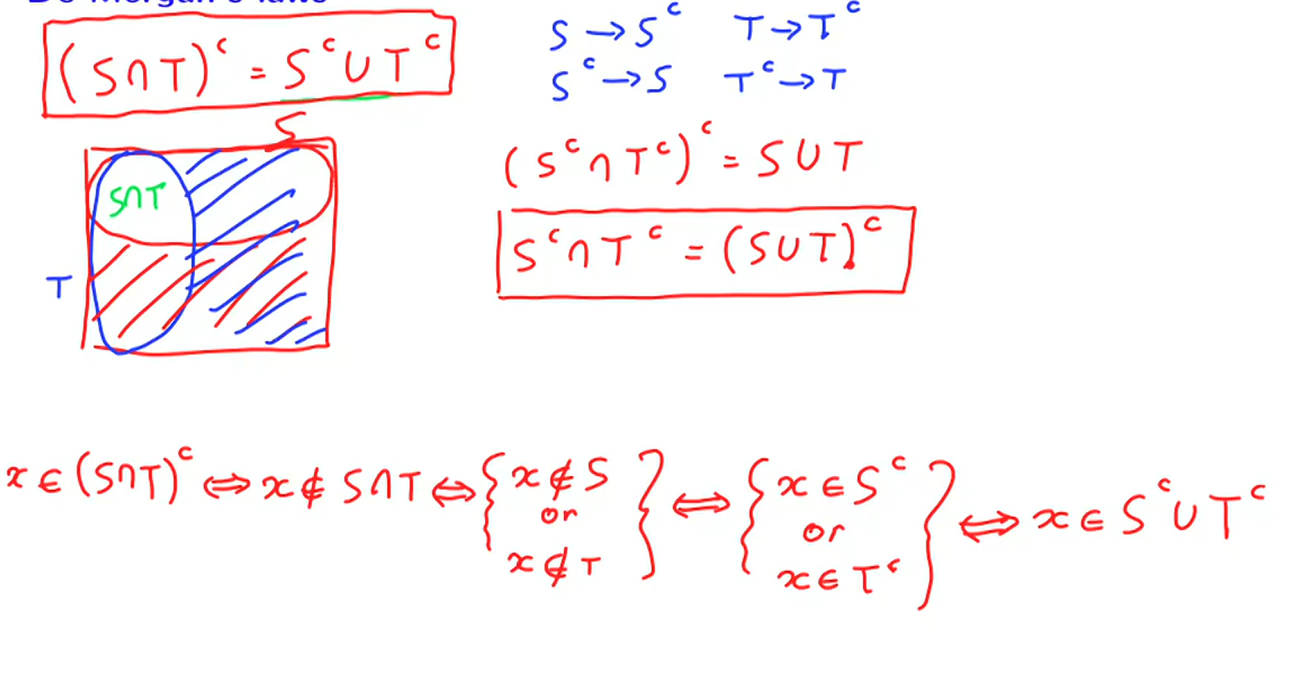 De Morgan's laws
(S∩T)ᶜ = Sᶜ∪Tᶜ
S → Sᶜ T → Tᶜ
Sᶜ → S Tᶜ → T
(Sᶜ∩Tᶜ)ᶜ = S∪T
Sᶜ∩Tᶜ = (S∪T)ᶜ
S
S∩T
T
x ∈ (S∩T)ᶜ ⇔ x ∉ S∩T ⇔ { x ∉ S or x ∉ T } ⇔ { x ∈ Sᶜ or x ∈ Tᶜ } ⇔ x ∈ Sᶜ∪Tᶜ